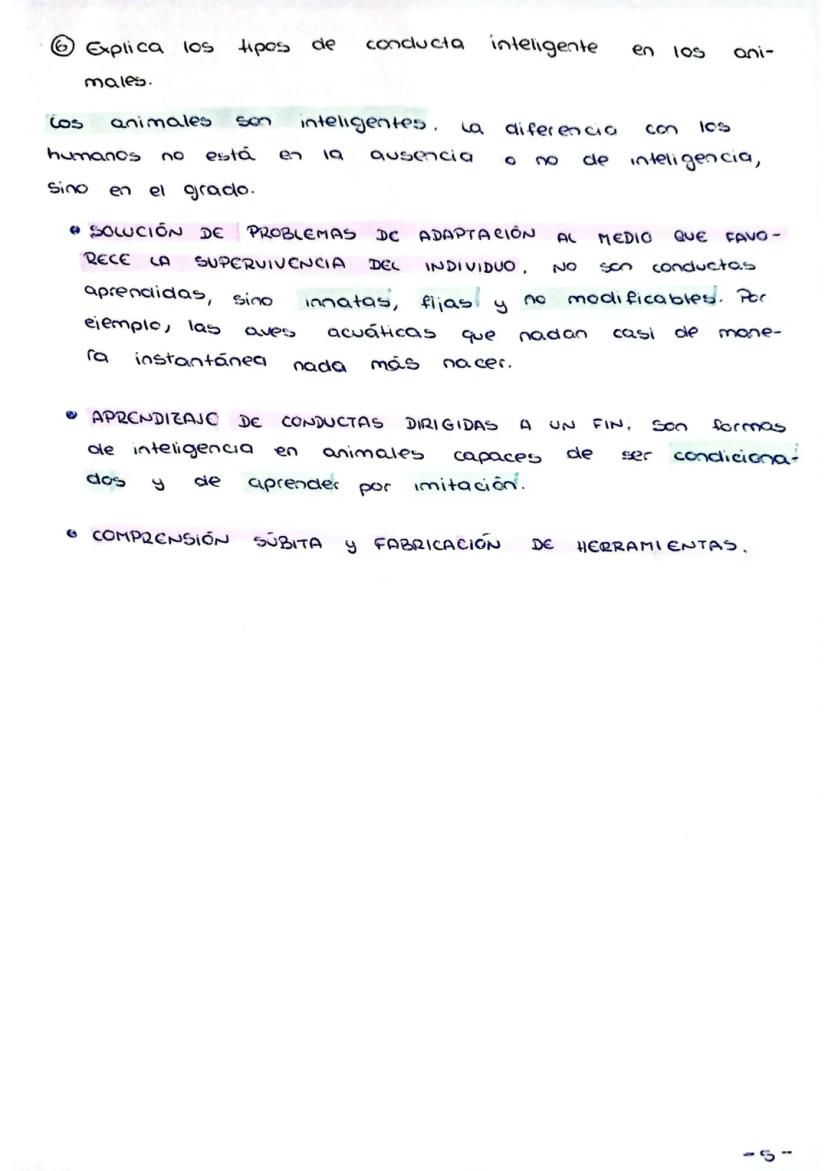 ⑥ Explica los tipos de conducta inteligente en los ani-
males.
Los animales son inteligentes. La diferencia con los
humanos no está en la ausencia o no de inteligencia,
sino en el grado.
• SOLUCIÓN DE PROBLEMAS DE ADAPTACIÓN AL MEDIO QUE FAVO-
RECE LA SUPERVIVENCIA DEL INDIVIDUO. No son conductas
aprendidas, sino innatas, fijas y no modificables. Por
ejemplo, las aves acuáticas que nadan casi de mane-
ra instantánea nada más nacer.
• APRENDIZAJE DE CONDUCTAS DIRIGIDAS A UN FIN. Son formas
de inteligencia en animales capaces de ser condiciona-
dos y de aprender por imitación.
• COMPRENSIÓN SÚBITA y FABRICACIÓN DE HERRAMIENTAS.
-5-